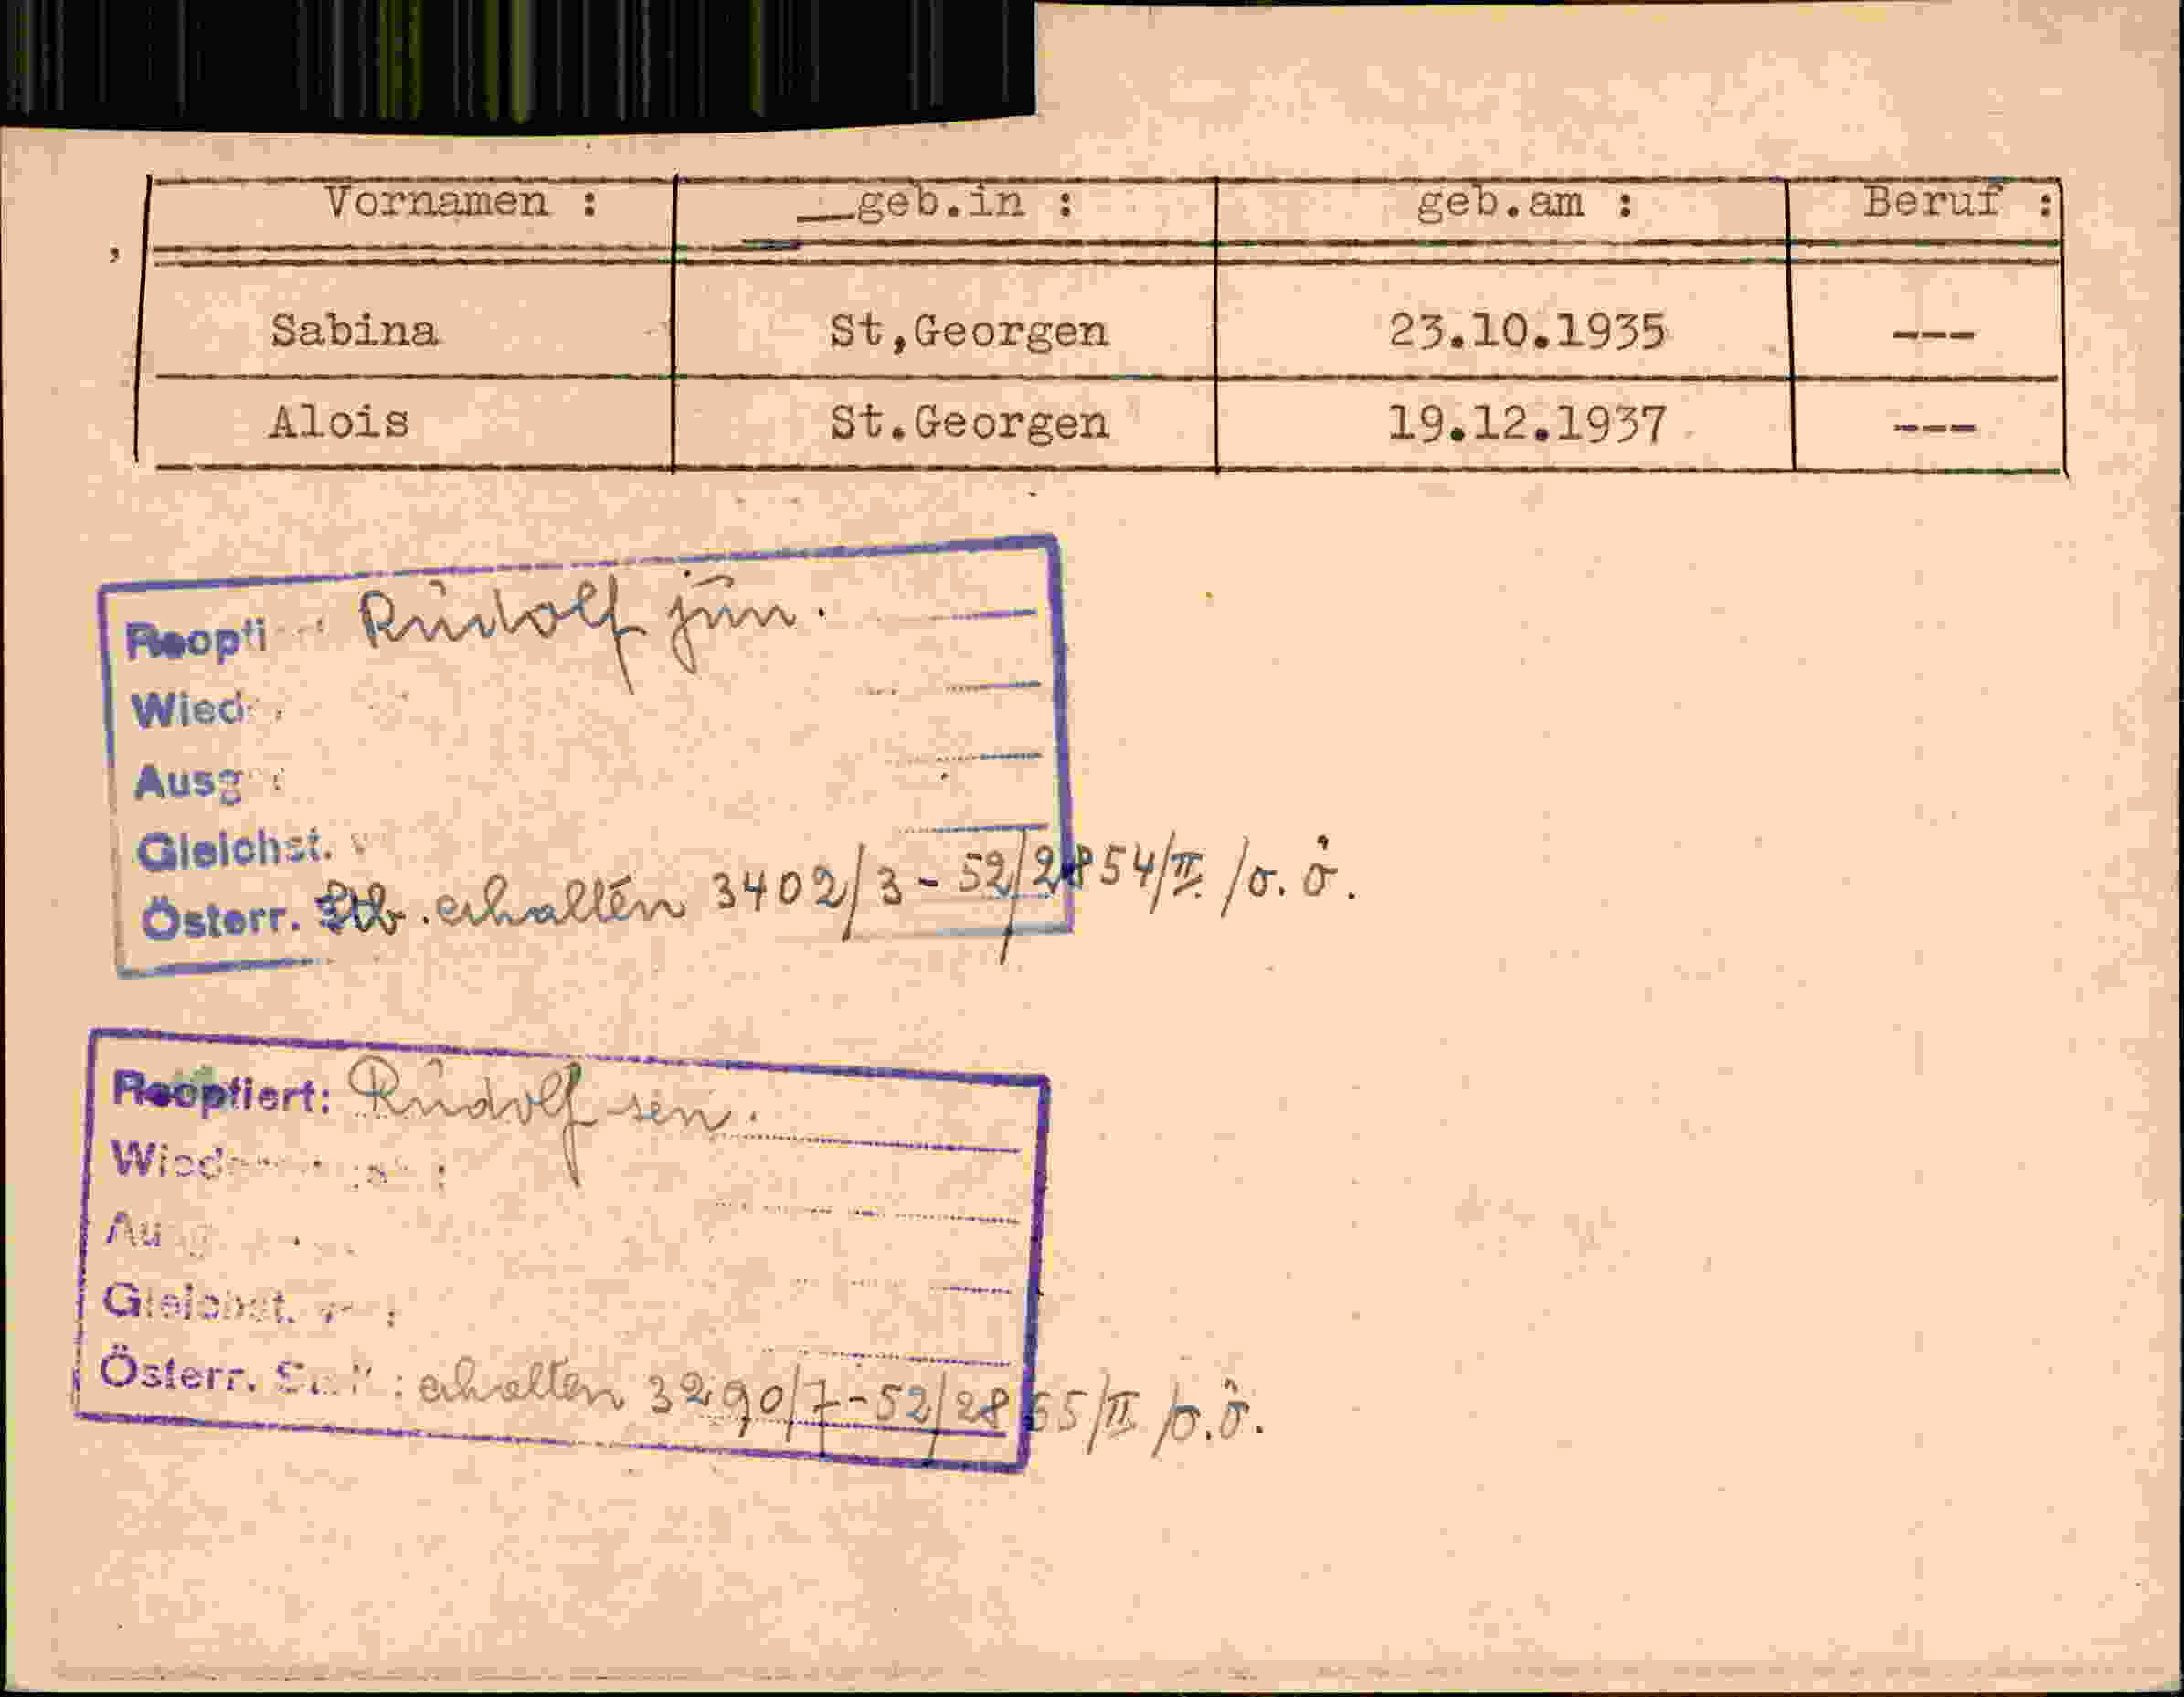 Vornamen : geb.in : geb.am : Beruf :
Sabina St,Georgen 23.10.1935 ---
Alois St.Georgen 19.12.1937 ---
Reopti Rudolf jun.
Wied
Ausg
Gleichst.
Österr. Stb. erhalten 3402/3-52/2854/II /o.ö.
Reoptiert: Rudolf sen.
Wied
Gleichst.
Österr. erhalten 3290/7-52/2855/II /o.ö.